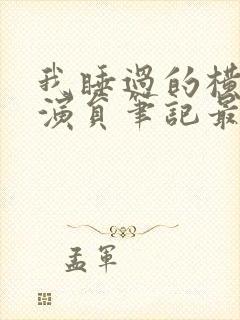 我睡過的橫
演員筆記最
孟軍